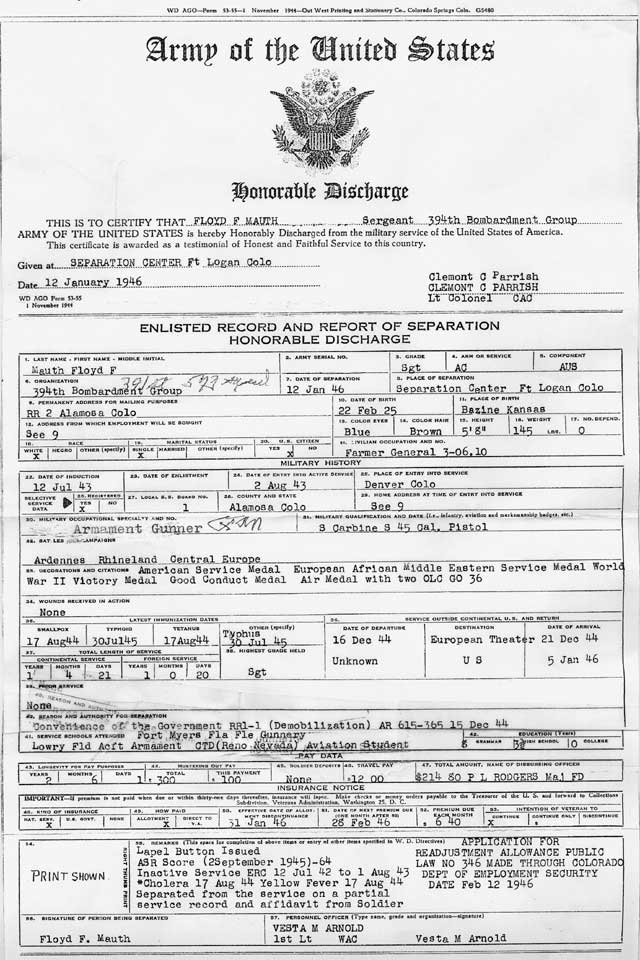 WD AGO—Form 53-55—1 November 1944—Out West Printing and Stationery Co., Colorado Springs Colo. G5480
Army of the United States
Honorable Discharge
THIS IS TO CERTIFY THAT FLOYD F MAUTH Sergeant 394th Bombardment Group
ARMY OF THE UNITED STATES is hereby Honorably Discharged from the military service of the United States of America.
This certificate is awarded as a testimonial of Honest and Faithful Service to this country.
Given at SEPARATION CENTER Ft Logan Colo
Date 12 January 1946
Clemont C Parrish
CLEMONT C PARRISH
Lt Colonel CAC
WD AGO Form 53-55
1 November 1944
ENLISTED RECORD AND REPORT OF SEPARATION
HONORABLE DISCHARGE
1. LAST NAME - FIRST NAME - MIDDLE INITIAL 2. ARMY SERIAL NO. 3. GRADE 4. ARM OR SERVICE 5. COMPONENT
Mauth Floyd F Sgt AC AUS
6. ORGANIZATION 7. DATE OF SEPARATION 8. PLACE OF SEPARATION
394th Bombardment Group 12 Jan 46 Separation Center Ft Logan Colo
9. PERMANENT ADDRESS FOR MAILING PURPOSES 10. DATE OF BIRTH 11. PLACE OF BIRTH
RR 2 Alamosa Colo 22 Feb 25 Bazine Kansas
12. ADDRESS FROM WHICH EMPLOYMENT WILL BE SOUGHT 13. COLOR EYES 14. COLOR HAIR 15. HEIGHT 16. WEIGHT 17. NO. DEPEND.
See 9 Blue Brown 5'8" 145 LBS. 0
18. RACE 19. MARITAL STATUS 20. U. S. CITIZEN CIVILIAN OCCUPATION AND NO.
WHITE NEGRO OTHER (specify) SINGLE MARRIED OTHER (specify) YES NO
X X X Farmer General 3-06.10
MILITARY HISTORY
22. DATE OF INDUCTION 23. DATE OF ENLISTMENT 24. DATE OF ENTRY INTO ACTIVE SERVICE 25. PLACE OF ENTRY INTO SERVICE
12 Jul 43 2 Aug 43 Denver Colo
SELECTIVE SERVICE DATA 26. REGISTERED YES NO 27. LOCAL S.S. BOARD NO. 28. COUNTY AND STATE 29. HOME ADDRESS AT TIME OF ENTRY INTO SERVICE
X 1 Alamosa Colo See 9
30. MILITARY OCCUPATIONAL SPECIALTY AND NO. 31. MILITARY QUALIFICATION AND DATE (i.e., infantry, aviation and marksmanship badges, etc.)
Armament Gunner S Carbine S 45 Cal. Pistol
CAMPAIGNS
Ardennes Rhineland Central Europe
33. DECORATIONS AND CITATIONS American Service Medal European African Middle Eastern Service Medal World
War II Victory Medal Good Conduct Medal Air Medal with two OLC GO 36
34. WOUNDS RECEIVED IN ACTION
None
35. LATEST IMMUNIZATION DATES 36. SERVICE OUTSIDE CONTINENTAL U.S. AND RETURN
SMALLPOX TYPHOID TETANUS OTHER (specify) DATE OF DEPARTURE DESTINATION DATE OF ARRIVAL
17 Aug44 30Jul45 17Aug44 Typhus 30 Jul 45 16 Dec 44 European Theater 21 Dec 44
37. TOTAL LENGTH OF SERVICE 38. HIGHEST GRADE HELD
CONTINENTAL SERVICE FOREIGN SERVICE Unknown U S 5 Jan 46
YEARS MONTHS DAYS YEARS MONTHS DAYS
1 4 21 1 0 20 Sgt
39. PRIOR SERVICE
None
40. REASON AND AUTHORITY FOR SEPARATION
Convenience of the Government RR1-1 (Demobilization) AR 615-365 15 Dec 44
41. SERVICE SCHOOLS ATTENDED Fort Myers Fla Fle Gunnery 42. EDUCATION (Years)
Lowry Fld Acft Armament CTD(Reno Nevada) Aviation Student GRAMMAR HIGH SCHOOL COLLEGE
PAY DATA
43. LONGEVITY FOR PAY PURPOSES 44. MUSTERING OUT PAY 45. SOLDIER DEPOSITS 46. TRAVEL PAY 47. TOTAL AMOUNT, NAME OF DISBURSING OFFICER
YEARS MONTHS DAYS TOTAL THIS PAYMENT
2 6 1 $300 $100 None $12 00 $214 80 P L RODGERS Maj FD
INSURANCE NOTICE
IMPORTANT—If premium is not paid when due or within thirty-one days thereafter, insurance will lapse. Make checks or money orders payable to the Treasurer of the U. S. and forward to Collections
Subdivision, Veterans Administration, Washington 25, D. C.
48. KIND OF INSURANCE 49. HOW PAID 50. EFFECTIVE DATE OF ALLOTMENT DISCONTINUANCE 51. DATE OF NEXT PREMIUM DUE (ONE MONTH AFTER 50) 52. PREMIUM DUE EACH MONTH 53. INTENTION OF VETERAN TO
NAT. SERV. U.S. GOVT. NONE ALLOTMENT DIRECT TO V.A. CONTINUE CONTINUE ONLY DISCONTINUE
X X 31 Jan 46 28 Feb 46 $ 6 40 X $
54. 55. REMARKS (This space for completion of above items or entry of other items specified in W. D. Directives)
PRINT SHOWN
RIGHT THUMB PRINT
Lapel Button Issued
ASR Score (2September 1945)-64
Inactive Service ERC 12 Jul 42 to 1 Aug 43
*Cholera 17 Aug 44 Yellow Fever 17 Aug 44
Separated from the service on a partial
service record and affidavit from Soldier
APPLICATION FOR
READJUSTMENT ALLOWANCE PUBLIC
LAW NO 346 MADE THROUGH COLORADO
DEPT OF EMPLOYMENT SECURITY
DATE Feb 12 1946
56. SIGNATURE OF PERSON BEING SEPARATED 57. PERSONNEL OFFICER (Type name, grade and organization—signature)
VESTA M ARNOLD
Floyd F. Mauth 1st Lt WAC Vesta M Arnold